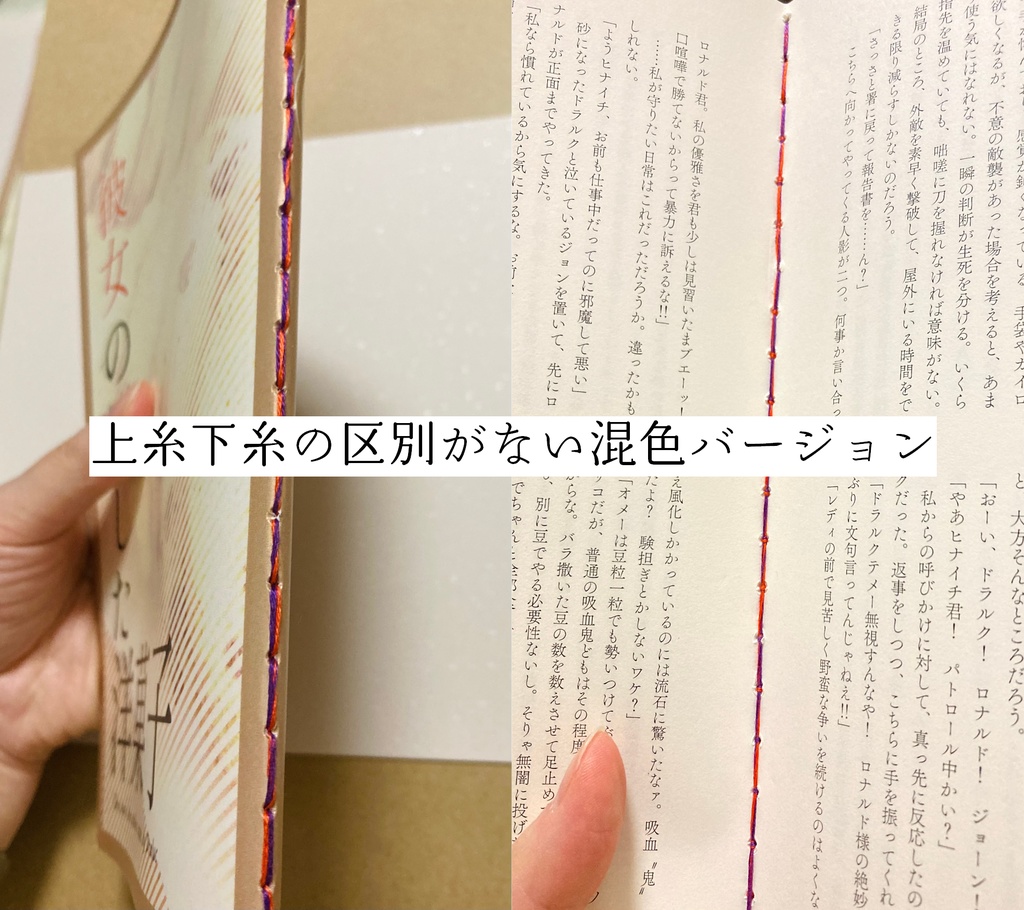 上糸下糸の区別がない混色バージョン
彼女の
欲しくなるが、不意の敵襲があった場合を考えると、あま
使う気にはなれない。一瞬の判断が生死を分ける。いくら
指先を温めていても、咄嗟に刀を握れなければ意味がない。
結局のところ、外敵を素早く撃破して、屋外にいる時間をで
きる限り減らすしかないのだろう。
「さっさと署に戻って報告書を……ん？」
こちらへ向かってやってくる人影が二つ。何事か言い合っ
と、大方そんなところだろう。
「おーい、ドラルク！　ロナルド！　ジョーン！
「やあヒナイチ君！　パトロール中かい？」
私からの呼びかけに対して、真っ先に反応したの
クだった。返事をしつつ、こちらに手を振ってくれ
「ドラルクテメー無視すんなや！　ロナルド様の絶妙
ぶりに文句言ってんじゃねえ!!」
「レディの前で見苦しく野蛮な争いを続けるのはよくな
ロナルド君。私の優雅さを君も少しは見習いたまブエーッ！
口喧嘩で勝てないからって暴力に訴えるな!!」
……私が守りたい日常はこれだっただろうか。違ったかも
しれない。
「ようヒナイチ、お前も仕事中だってのに邪魔して悪い」
砂になったドラルクと泣いているジョンを置いて、先にロ
ナルドが正面までやってきた。
「私なら慣れているから気にするな。お前
え風化しかかっているのには流石に驚いたなァ。吸血〝鬼〟
だよ？　験担ぎとかしないワケ？」
「オメーは豆粒一粒でも勢いつけて
リコだが、普通の吸血鬼どもはその程度
からな。バラ撒いた豆の数を数えさせて足止め
別に豆でやる必要性ないし。そりゃ無闇に投げ